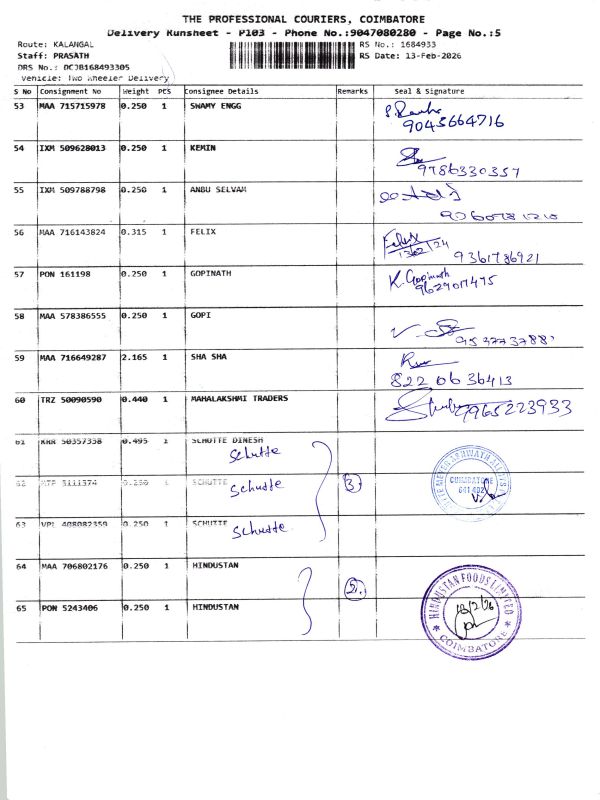 THE PROFESSIONAL COURIERS, COIMBATORE
Delivery Runsheet - P103 - Phone No.:9047080280 - Page No.:5
Route: KALANGAL RS No.: 1684933
Staff: PRASATH RS Date: 13-Feb-2026
DRS No.: DCJB168493305
Vehicle: Two Wheeler Delivery
S No Consignment No Weight PCS Consignee Details Remarks Seal & Signature
53 MAA 715715978 0.250 1 SWAMY ENGG
9045664716
54 IXM 509628013 0.250 1 KEMIN
9786330357
55 IXM 509788798 0.250 1 ANBU SELVAM
56 MAA 716143824 0.315 1 FELIX Felix
9361786921
57 PON 161198 0.250 1 GOPINATH K. Gopinath
9629017475
58 MAA 578386555 0.250 1 GOPI
59 MAA 716649287 2.165 1 SHA SHA
822 06 36413
60 TRZ 50090590 0.440 1 MAHALAKSHMI TRADERS 9965223933
61 KRR 50357358 0.495 1 SCHUTTE DINESH
Schutte
62 0.250 1 SCHUTTE 3
Schutte
COIMBATORE
641 402
63 VPL 408082359 0.250 1 SCHUTTE
Schutte
64 MAA 706802176 0.250 1 HINDUSTAN
65 PON 5243406 0.250 1 HINDUSTAN
HINDUSTAN FOODS LIMITED
13/2/26
COIMBATORE